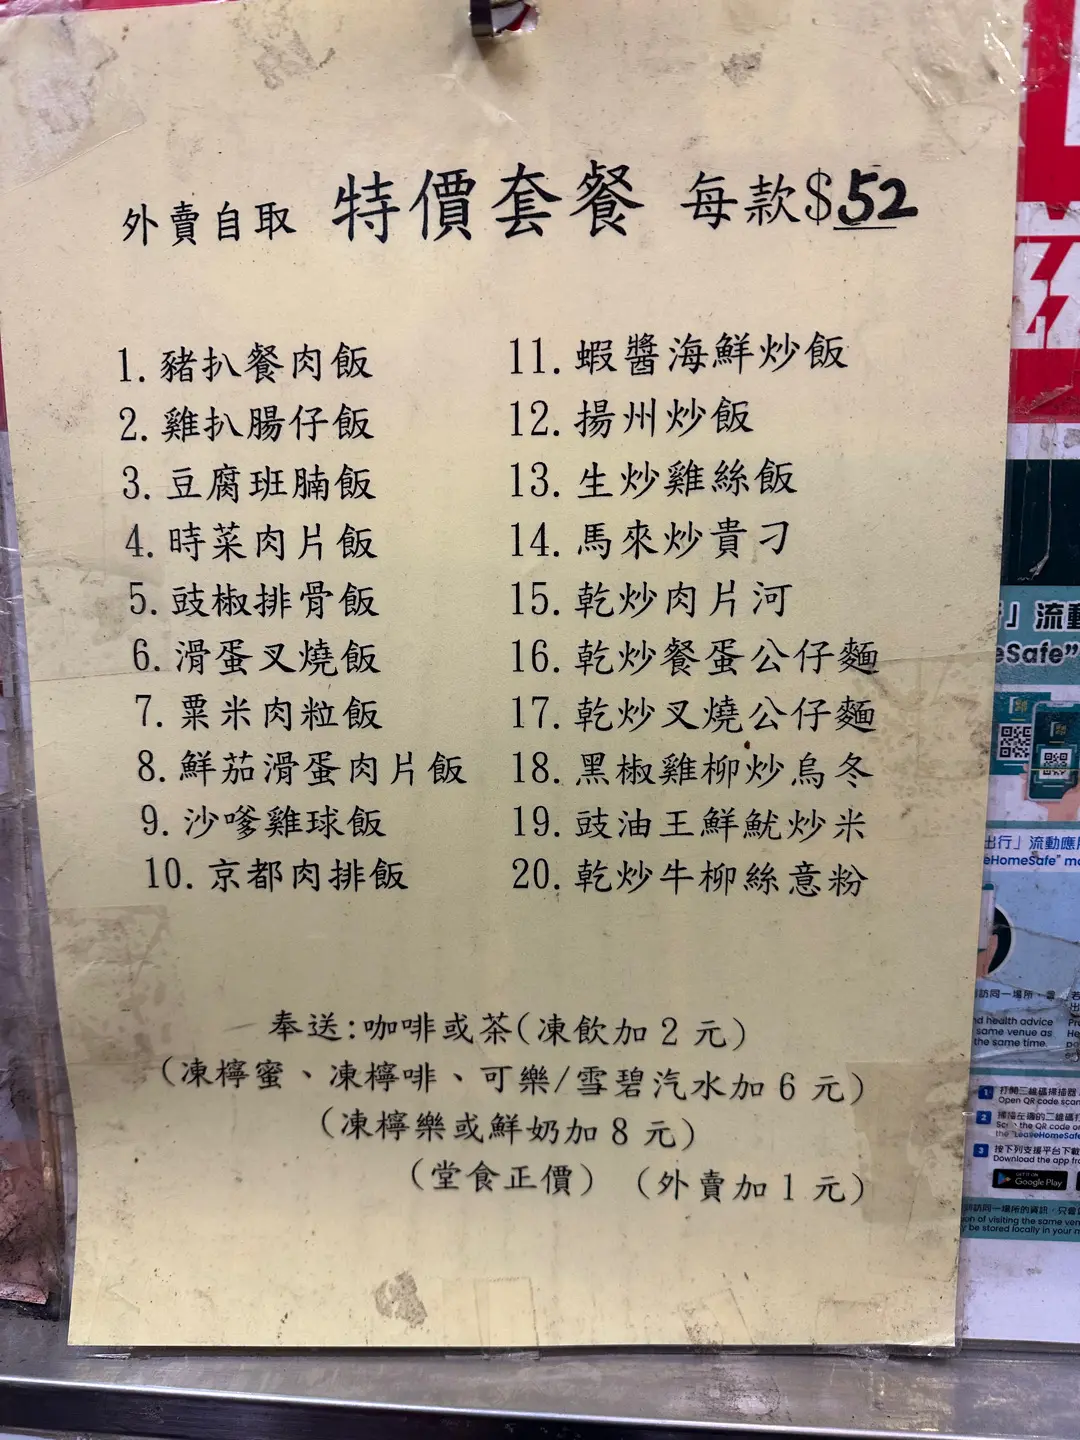 外賣自取 特價套餐 每款$52
1. 豬扒餐肉飯
2. 雞扒腸仔飯
3. 豆腐班腩飯
4. 時菜肉片飯
5. 豉椒排骨飯
6. 滑蛋叉燒飯
7. 粟米肉粒飯
8. 鮮茄滑蛋肉片飯
9. 沙嗲雞球飯
10. 京都肉排飯
11. 蝦醬海鮮炒飯
12. 揚州炒飯
13. 生炒雞絲飯
14. 馬來炒貴刁
15. 乾炒肉片河
16. 乾炒餐蛋公仔麵
17. 乾炒叉燒公仔麵
18. 黑椒雞柳炒烏冬
19. 豉油王鮮魷炒米
20. 乾炒牛柳絲意粉
奉送:咖啡或茶(凍飲加2元)
(凍檸蜜、凍檸啡、可樂/雪碧汽水加6元)
(凍檸樂或鮮奶加8元)
(堂食正價) (外賣加1元)
」流動
eSafe"
出行」流動應
eHomeSafe" mo
訪同一場所，
d health advice
same venue as
the same time.
1 打開二維碼掃描器
Open QR code scan
2 掃描在場的二維碼
the QR code
the "LeaveHomeSafe
3 按下列支援平台下載
Download the app fro
GET IT ON
Google Play
訪同一場所的資訊，只會
on of visiting the same ven
y be stored locally in your m